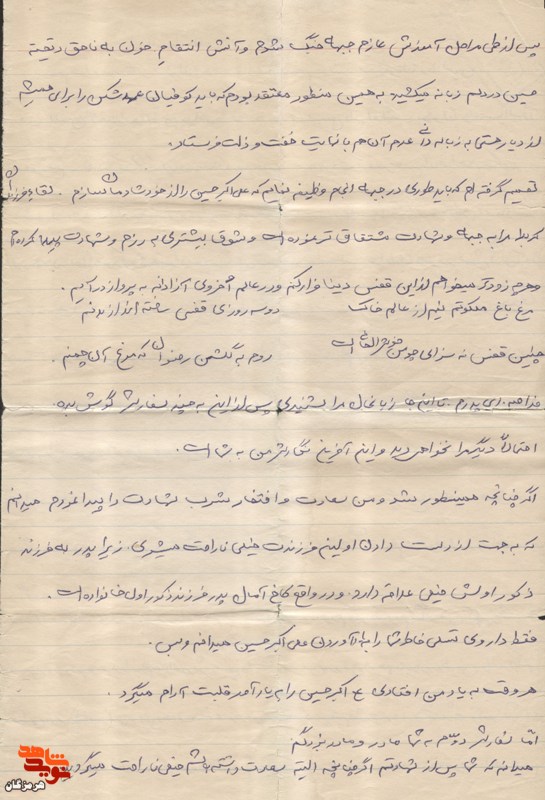 پس از طی مراحل آموزش عازم جبهه جنگ شوم و آتش انتقام خون به ناحق ریخته
حسین در دلم زبانه میکشید به همین منظور معتقد بودم که باید کوفیان عهد شکن را برای همیشه
از دیار هستی به زباله دانی عدم آن هم با نهایت خفت و ذلت فرستاد.
تصمیم گرفته ام که باید طوری در جبهه انجام وظیفه نمایم که علی اکبر حسین را از خود شادمان سازم. لقاء فرزندان
کربلا مرا به جبهه و شهادت مشتاق تر نموده است و شوق بیشتری به رزم و شهادت پیدا کرده ام
و هر چه زودتر میخواهم از این قفس دنیا فرار کنم و در عالم اخروی آزادانه به پرواز درآیم.
مرغ باغ ملکوتم نیم از عالم خاک دو سه روزی قفسی ساخته اند از بدنم
چنین قفس نه سزای چو من خوش الحانی است روم به گلشن رضوان که مرغ آن چمنم.
ای پدرم. تا این جا زبانحال مرا شنیدی پس از این به چند سفارش گوش بده.
احتمالاً دیگر مرا نخواهی دید و این آخرین نگارش من به شماست.
اگر چنانچه همینطور شد و من سعادت و افتخار شرب شهادت را پیدا نمودم میدانم
که به جهت از دست دادن اولین فرزندت خیلی ناراحت میشوی. زیرا پدر به فرزند
ذکور اولش خیلی علاقه دارد. و در واقع کاخ آمال پدر فرزند ذکور اول خانواده است.
فقط داروی تسلی خاطر شما را به یاد آوردن علی اکبر حسین میدانم و بس.
هر وقت به یاد من افتادی علی اکبر حسین را به یاد آور قلبت آرام میگیرد.
امّا سفارش دوّم به شما مادر و مادر بزرگم
میدانم که شما پس از شهادتم اگر چنانچه البته سعادت داشته باشم خیلی ناراحت میگردید
شاهد
نوید
هرمزگان